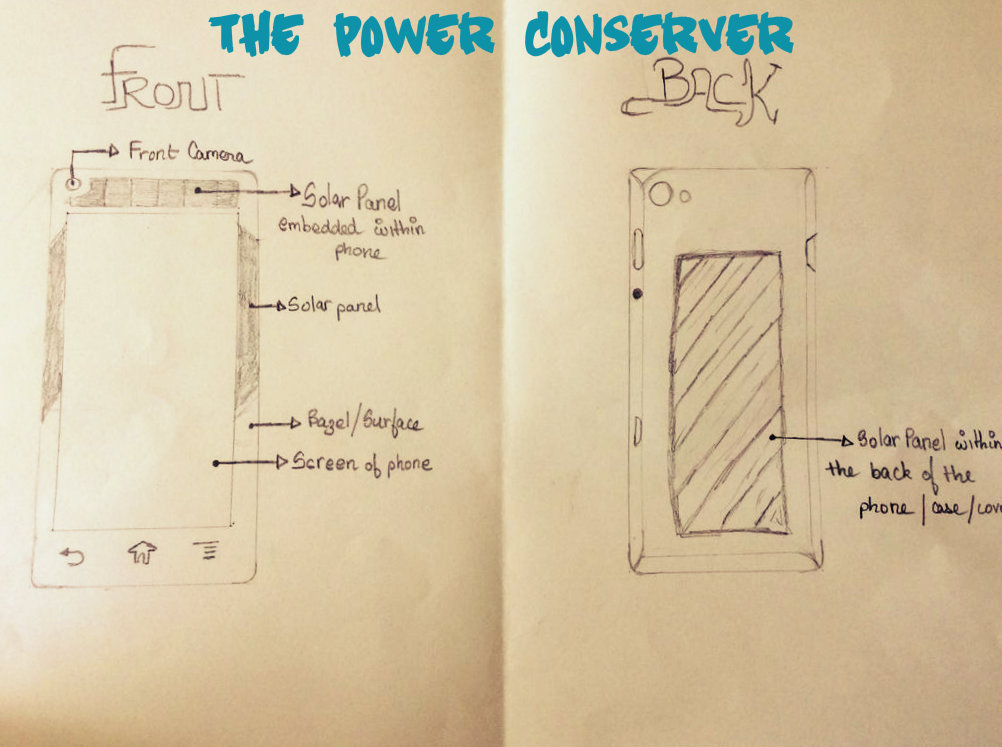 THE POWER CONSERVER
FRONT
Front Camera
Solar Panel
embedded within
phone
Solar panel
Bazel/Surface
Screen of phone
BACK
Solar Panel within
the back of the
phone/case/cove